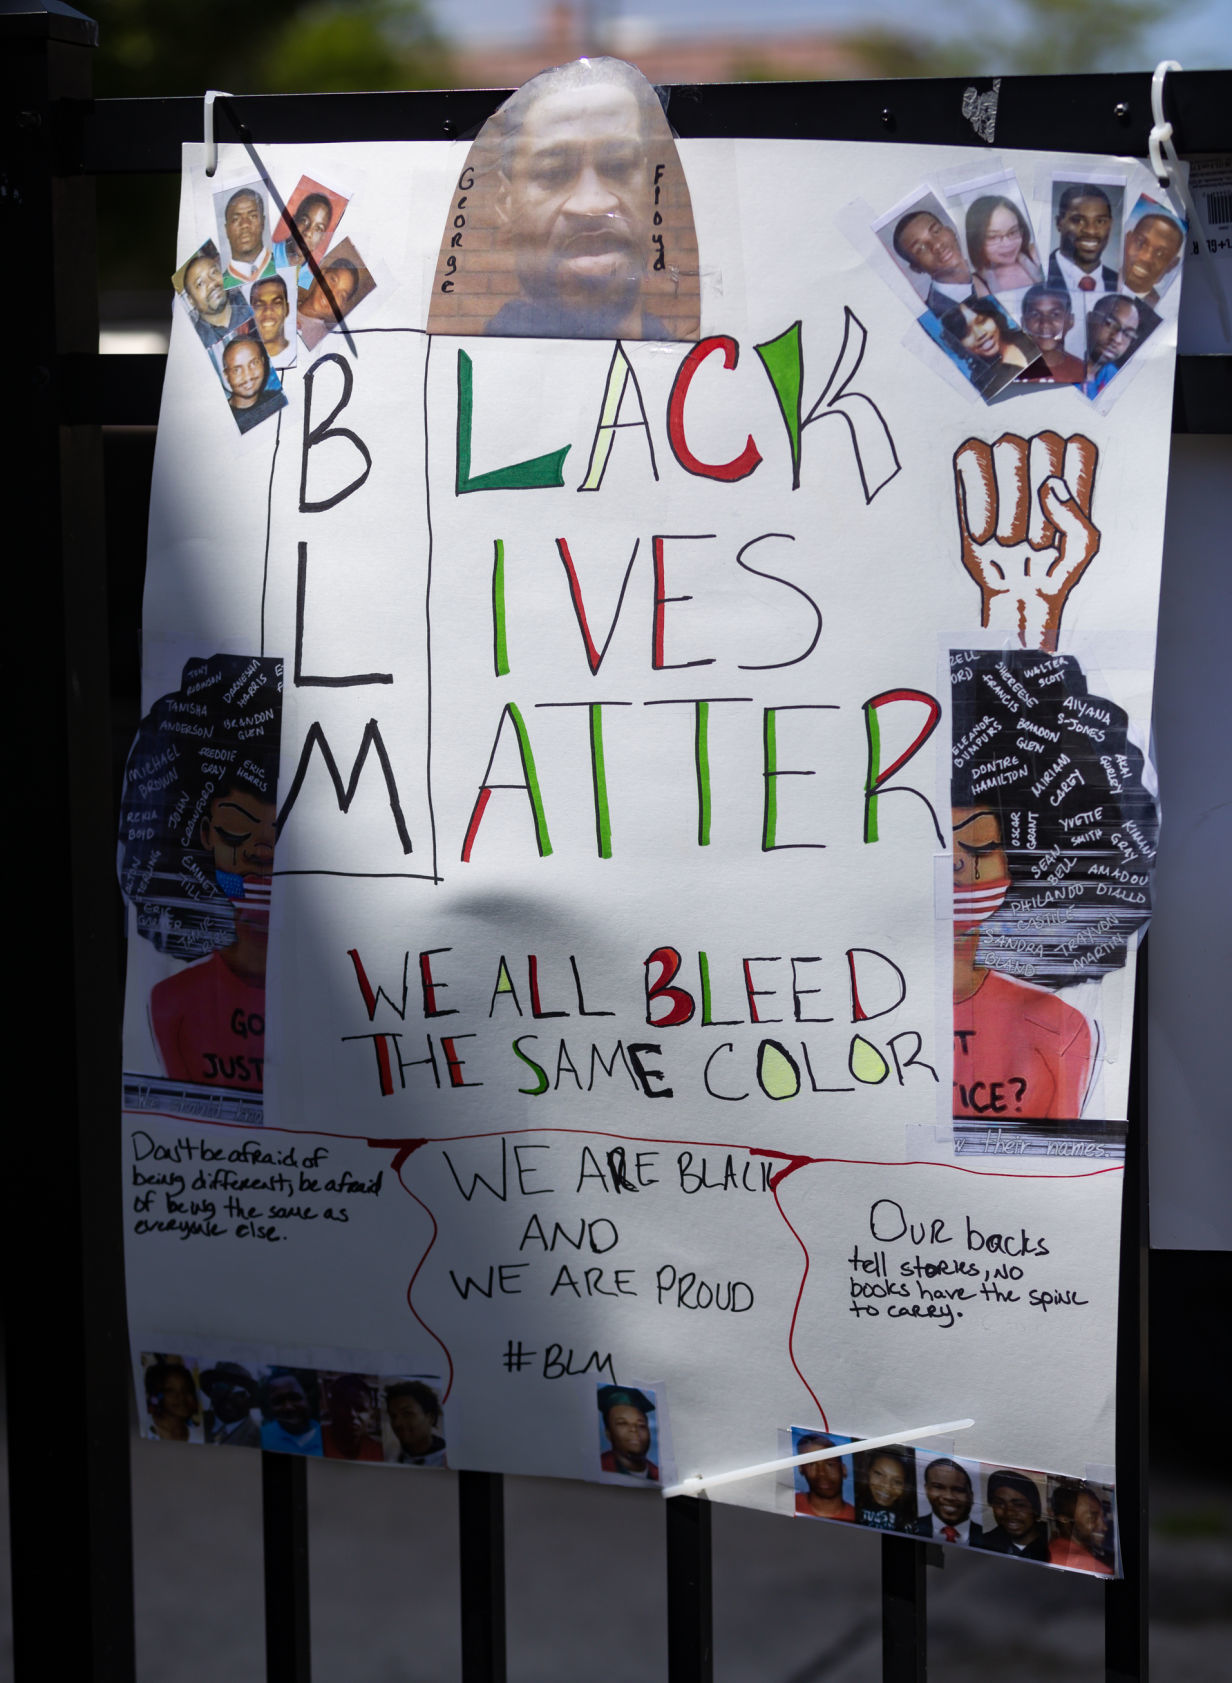 George Floyd
BLACK
LIVES
MATTER
TONY
ROBINSON
DARNESHA
HARRIS
TANISHA
ANDERSON
BRANDON
GLEN
MICHAEL
BROWN
FREDDIE
GRAY
ERIC
HARRIS
JOHN
CRAWFORD
REKIA
BOYD
EMMET
TILL
ALTON
STERLING
ERIC
GARNER
SHEREESE
FRANCIS
WALTER
SCOTT
AIYANA
S-JONES
ELEANOR
BUMPURS
BRANDON
GLEN
DONTRE
HAMILTON
MIRIAM
CAREY
AKAI
GURLEY
OSCAR
GRANT
YVETTE
SMITH
KIMANI
GRAY
SEAN
BELL
AMADOU
DIALLO
PHILANDO
CASTILE
SANDRA
BLAND
TRAYVON
MARTIN
GO
JUST
T
ICE?
We should kno
w their names.
WE ALL BLEED
THE SAME COLOR
Don't be afraid of
being different, be afraid
of being the same as
everyone else.
WE ARE BLACK
AND
WE ARE PROUD
#BLM
Our backs
tell stories, no
books have the spine
to carry.